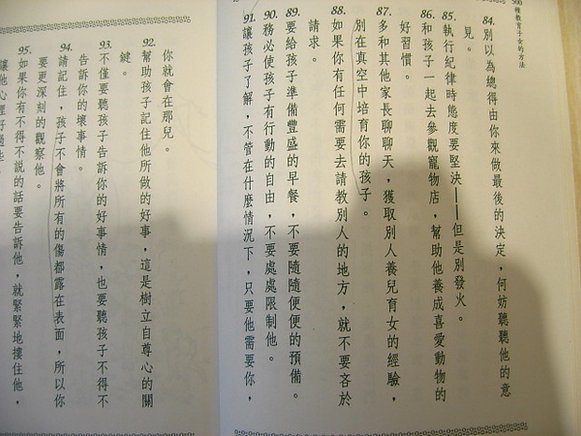 種教育子女的方法
84. 別以為總得由你來做最後的決定，何妨聽聽他的意
見。
85. 執行紀律時態度要堅決——但是別發火。
86. 和孩子一起去參觀寵物店，幫助他養成喜愛動物的
好習慣。
87. 多和其他家長聊聊天，獲取別人養兒育女的經驗，
別在真空中培育你的孩子。
88. 如果你有任何需要去請教別人的地方，就不要吝於
請求。
89. 要給孩子準備豐盛的早餐，不要隨隨便便的預備。
90. 務必使孩子有行動的自由，不要處處限制他。
91. 讓孩子了解，不管在什麼情況下，只要他需要你，
你就會在那兒。
92. 幫助孩子記住他所做的好事，這是樹立自尊心的關
鍵。
93. 不僅要聽孩子告訴你的好事情，也要聽孩子不得不
告訴你的壞事情。
94. 請記住，孩子不會將所有的傷都露在表面，所以你
要更深刻的觀察他。
95. 如果你有不得不說的話要告訴他，就緊緊地摟住他，
讓他心理好過些